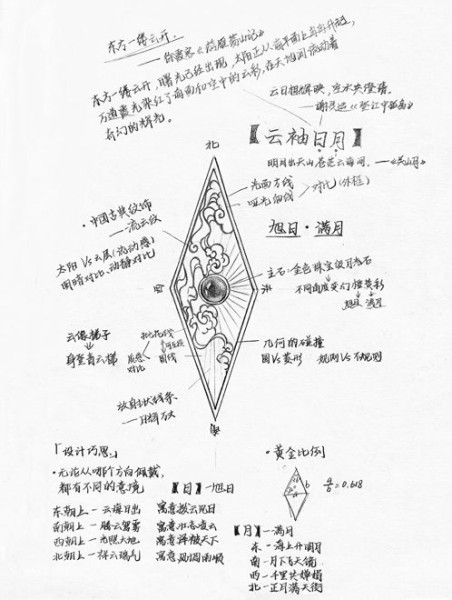 东方一缕云开.
东方一缕云开，曙光已经出现，太阳正从海平面上冉冉升起，
万道霞光染红了海面和空中的云彩，在天地间流动着
奇幻的辉光。
云日相辉映，空水共澄鲜。
——谢灵运《登江中孤屿》
【云袖日月】
明月出天山，苍茫云海间。——《关山月》
北
光面方线
哑光曲线
对比（外框）
·中国古典纹饰
——流云纹
旭日·满月
太阳 Vs 云层（流动感）
明暗对比、动静对比
主石：金色珠宝级月光石
不同角度是
旭日 满月
西
东
云像梯子
身登青云梯
质感
对比
曲线
几何的碰撞
圆Vs菱形 规则Vs不规则
放射状线条
南
「设计巧思」
·无论从哪个方向佩戴，
都有不同的意境
【日】—旭日
东朝上—云海日出 寓意拨云见日
南朝上—腾云驾雾 寓意壮志凌云
西朝上—光照大地 寓意泽被天下
北朝上—祥云瑞气 寓意风调雨顺
·黄金比例
a
b
a/b=0.618
【月】—满月
东—海上升明月
南—月下飞天镜
西—千里共婵娟
北—正月满天街